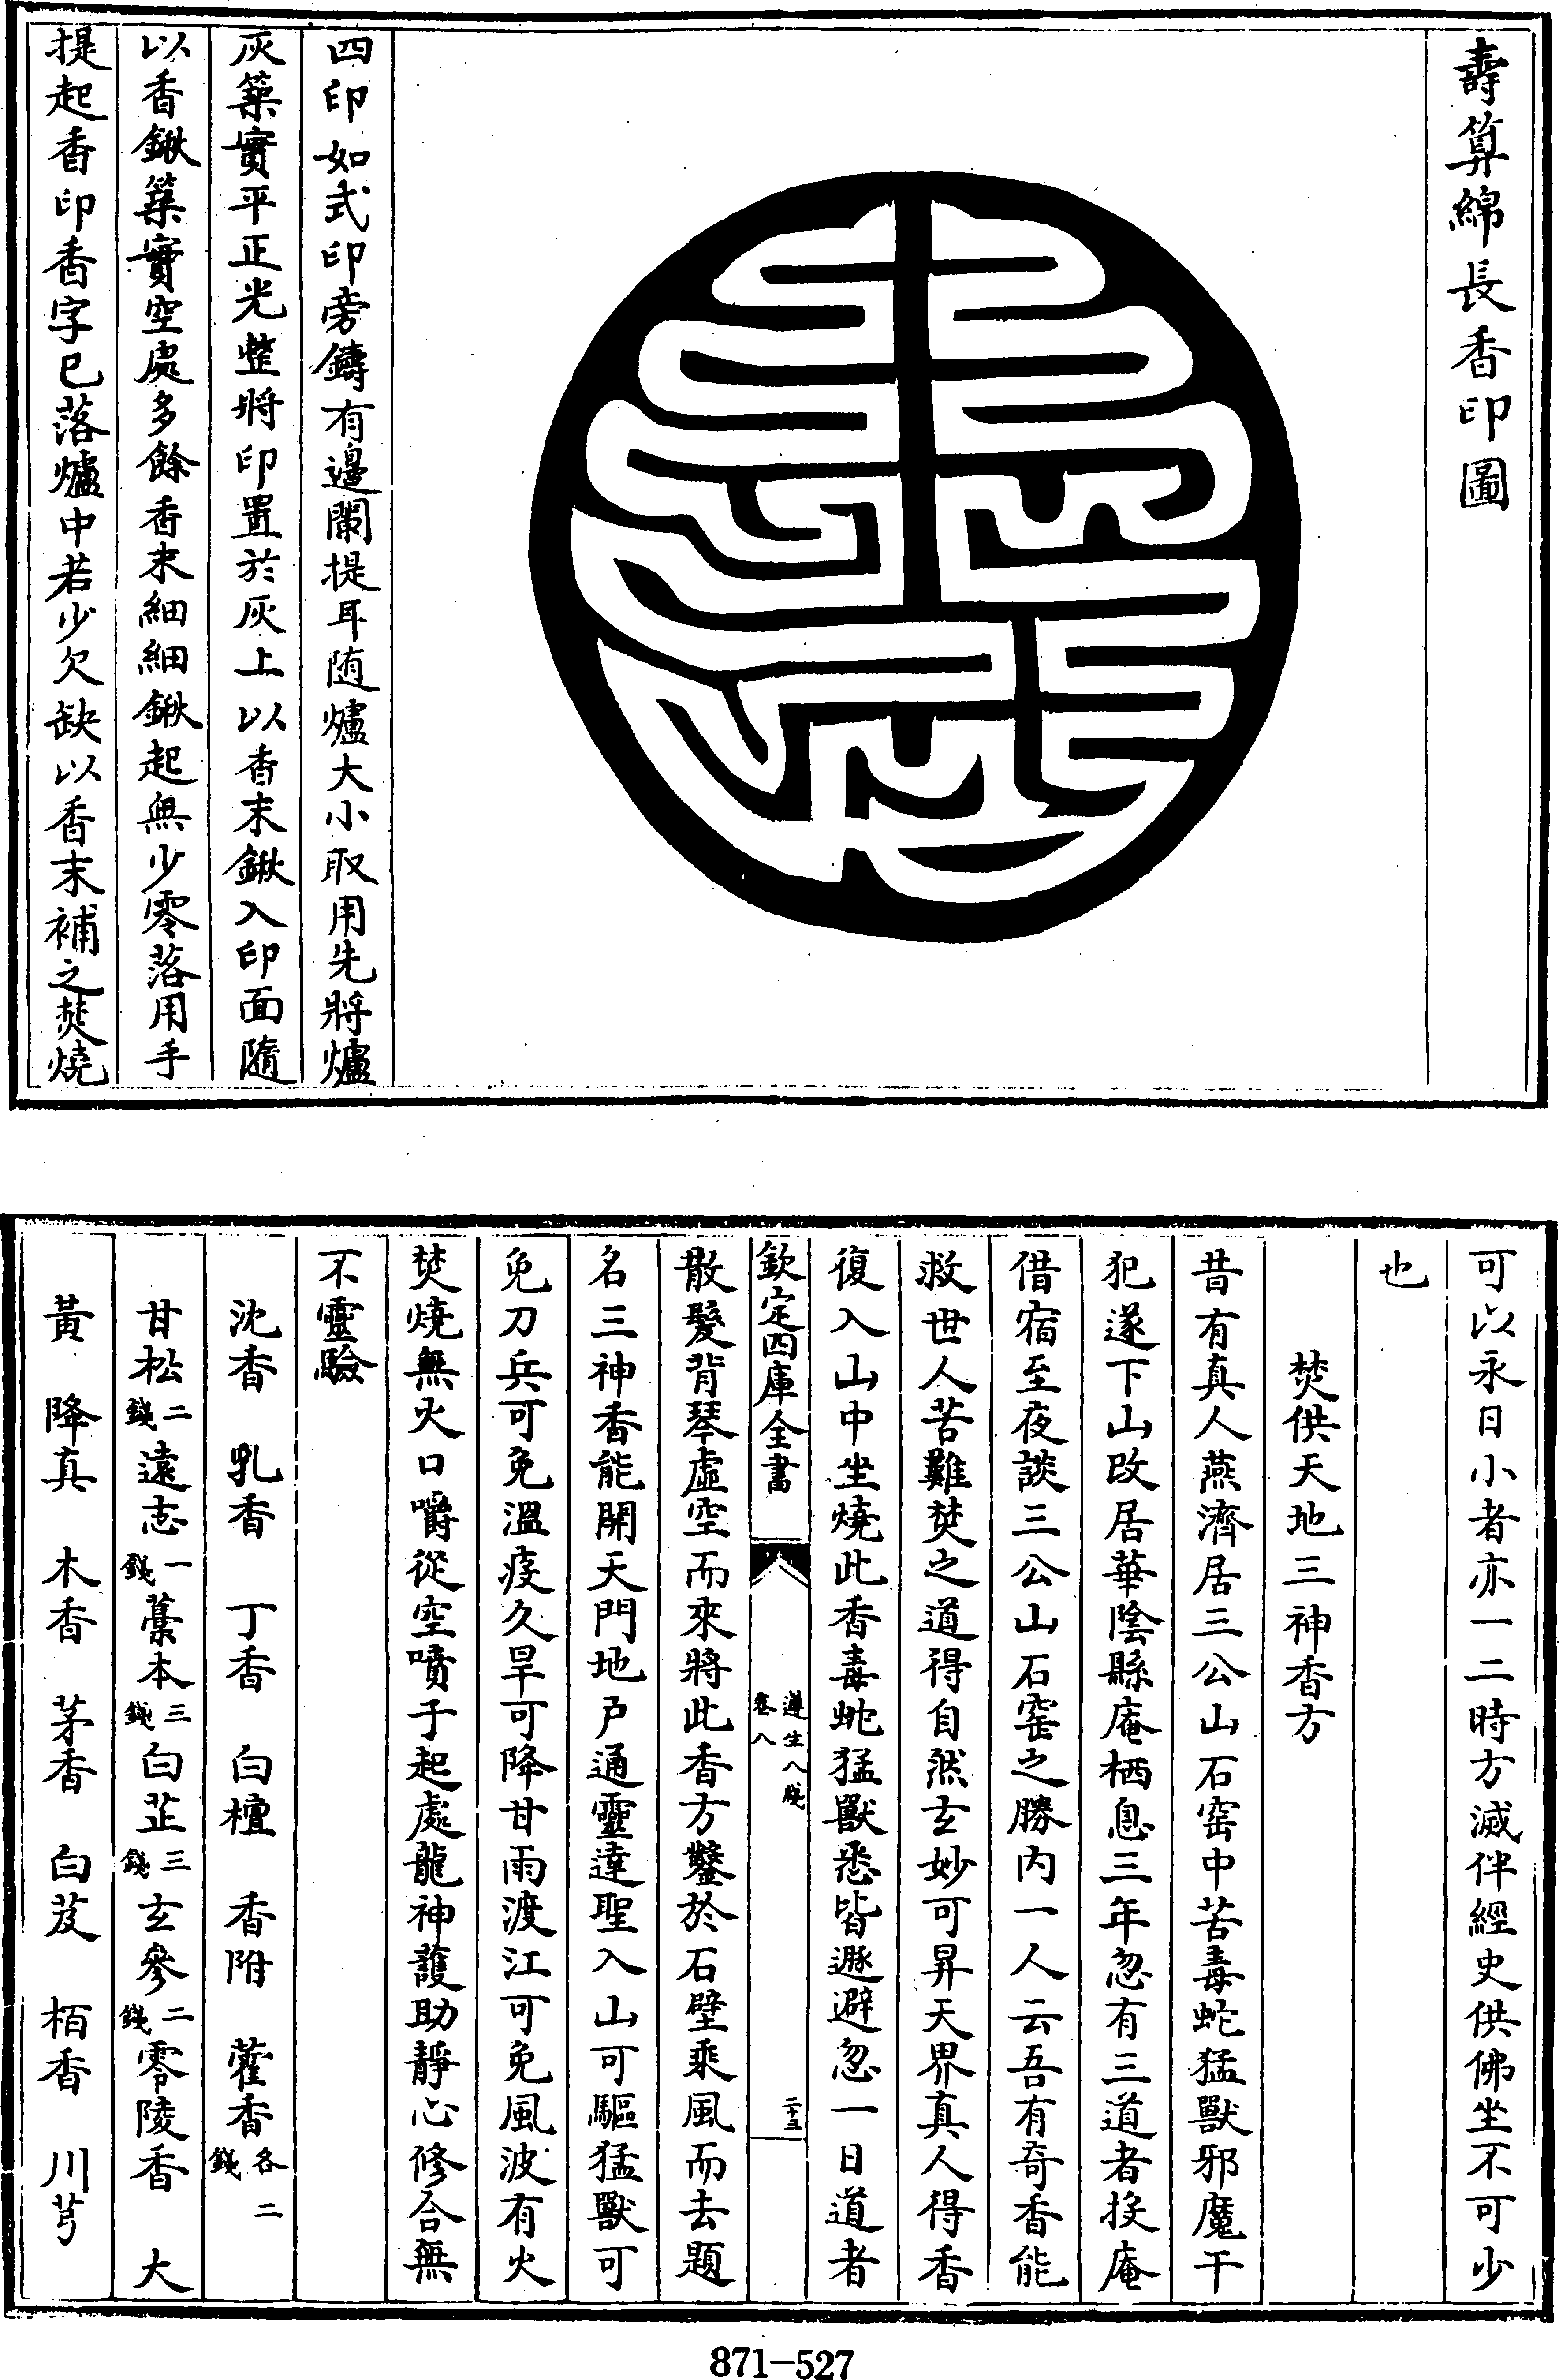 壽算綿長香印圖
四印如式印旁鑄有邊闌提耳随爐大小取用先將爐
灰築實平正光整將印置於灰上以香末鍬入印面隨
以香鍬築實空處多餘香末細細鍬起無少零落用手
提起香印香字已落爐中若少欠缺以香末補之焚燒
可以永日小者亦一二時方滅伴經史供佛坐不可少
也
焚供天地三神香方
昔有真人燕濟居三公山石窑中苦毒蛇猛獸邪魔干
犯遂下山改居華陰縣庵栖息三年忽有三道者投庵
借宿至夜談三公山石窑之勝内一人云吾有奇香能
救世人苦難焚之道得自然玄妙可昇天界真人得香
復入山中坐燒此香毒蛇猛獸悉皆遯避忽一日道者
欽定四庫全書
遵生八牋
卷八
二十三
散髮背琴虛空而來將此香方鑿於石壁乘風而去題
名三神香能開天門地户通靈達聖入山可驅猛獸可
免刀兵可免溫疫久旱可降甘雨渡江可免風波有火
焚燒無火口嚼從空噴于起處龍神護助静心修合無
不靈驗
沈香 乳香 丁香 白檀 香附 藿香各二錢
甘松二錢遠志一錢藁本三錢白芷三錢玄參二錢零陵香 大
黃 降真 木香 茅香 白芨 栢香 川芎
871-527